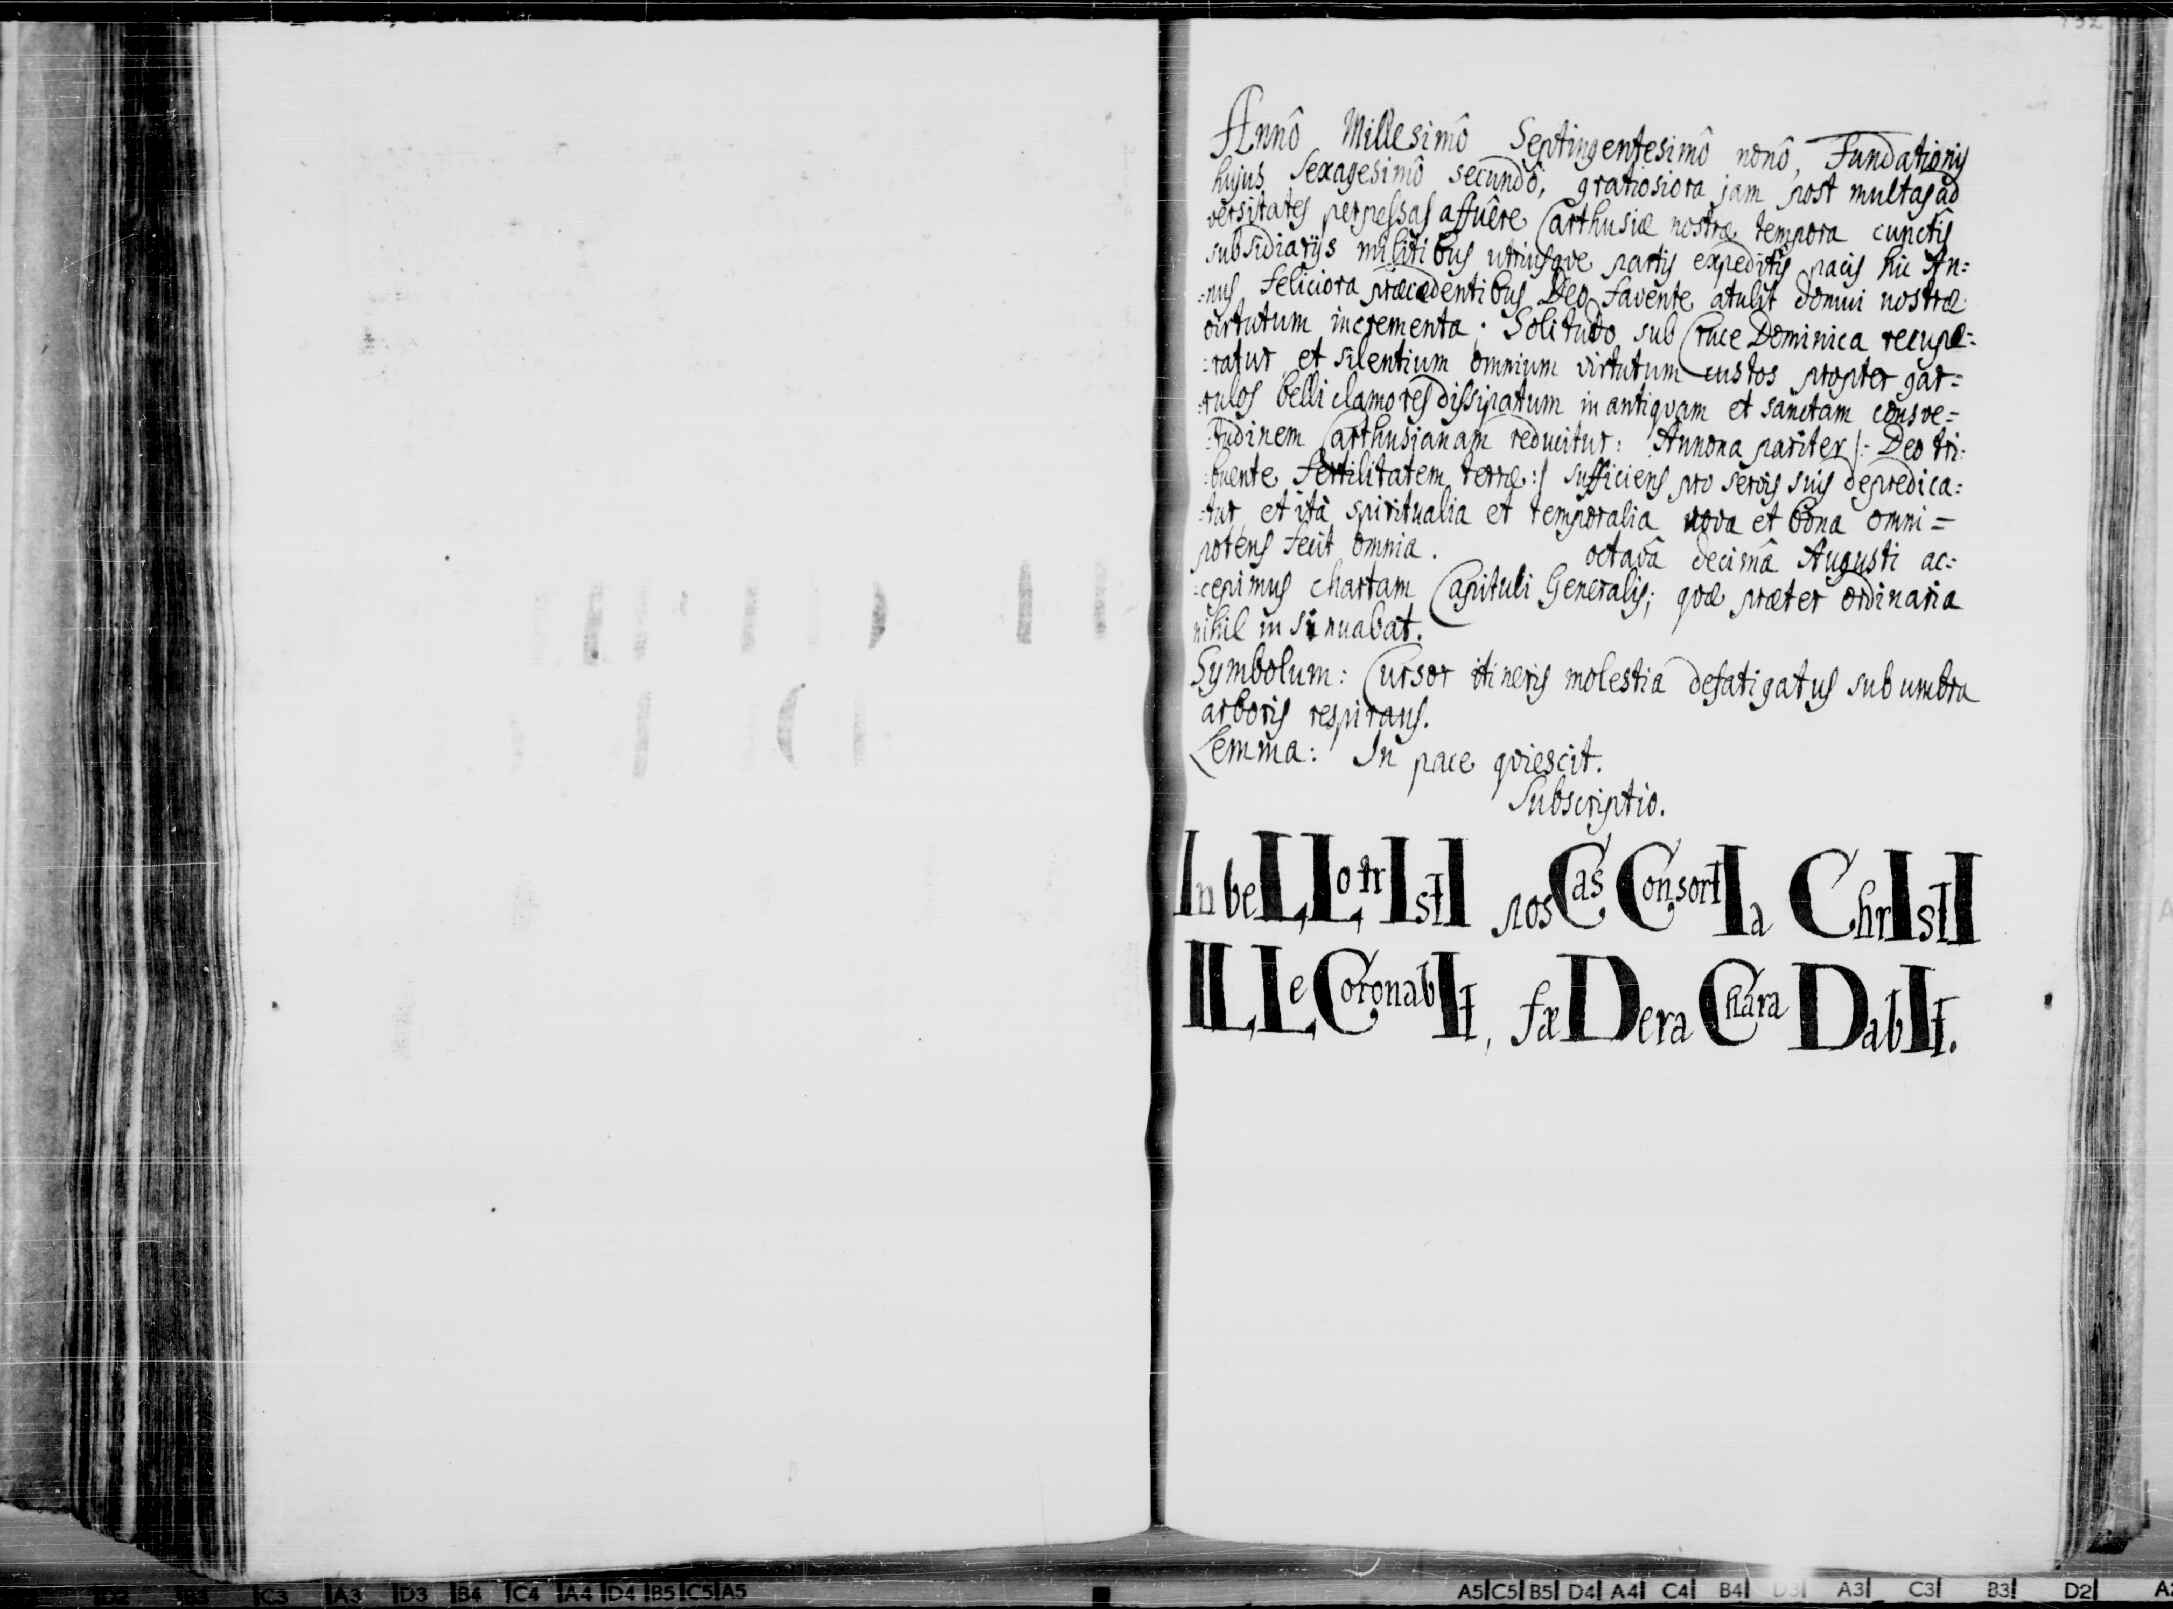 132
Annô Millesimô Septingentesimô nonô, Fundationis
hujus Sexagesimô secundô, gratiosiora jam post multas ad
versitates perpessas affuêre Carthusiæ nostræ tempora cunctis
subsidiarijs militibus utriusqve partis expeditis pacis hic An:
:nus feliciora præcedentibus Deo favente atulit domui nostræ
virtutum incrementa; Solitudo sub Cruce Dominica recupe:
:ratur et silentium omnium virtutum custos propter gar=
:rulos belli clamores dissipatum in antiqvam et sanctam consve=
:tudinem Carthusianam reducitur: Annona pariter /: Deo tri:
:buente fertilitatem terræ :/ sufficiens pro servis suis depredica:
:tur et ità spiritualia et temporalia nova et bona omni=
potens fecit omnia. octavâ decimâ Augusti ac:
:cepimus chartam Capituli Generalis; qvæ præter ordinaria
nihil in sinuabat.
Symbolum: Cursor itineris molestia defatigatus sub umbra
arboris respirans.
Lemma: In pace qviescit.
Subscriptio.
In beLLo trIstI posCas ConsortIa ChrIstI
ILLe CoronabIt, fæDera Chara DabIt.
D2 B3 C3 A3 D3 B4 C4 A4 D4 B5 C5 A5 A5 C5 B5 D4 A4 C4 B4 D3 A3 C3 B3 D2